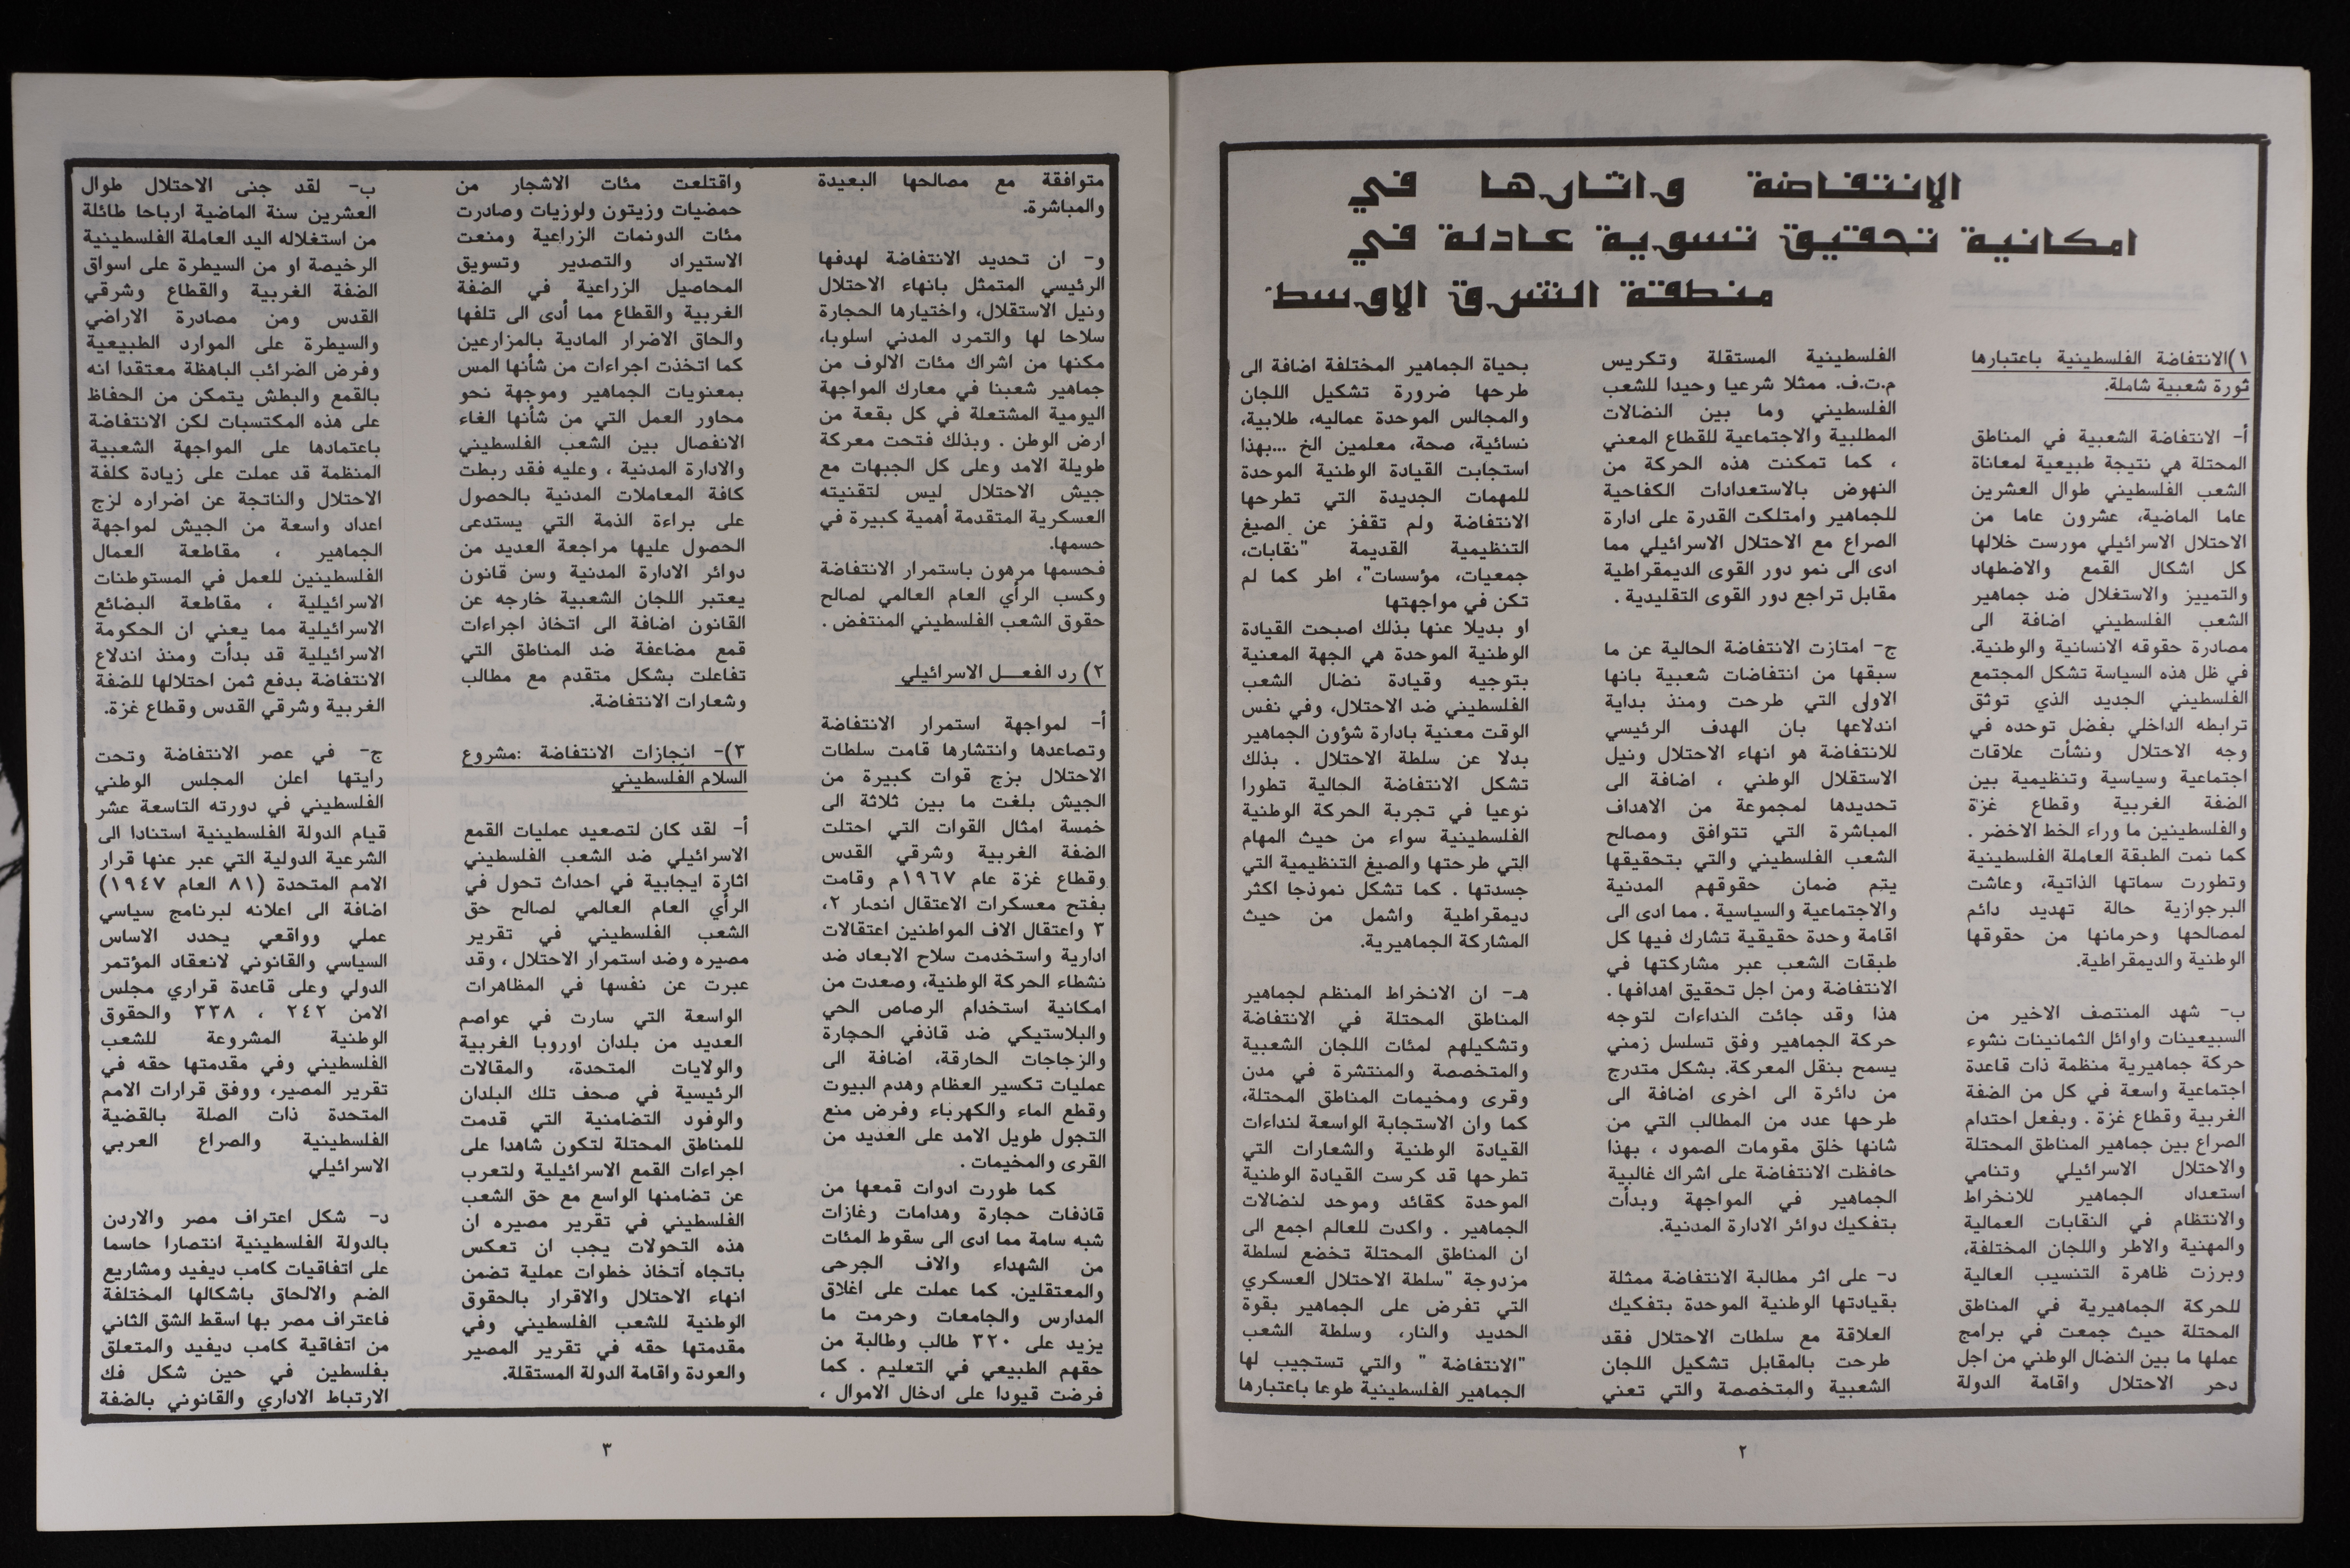 الانتفاضة واثارها في
امكانية تحقيق تسوية عادلة في
منطقة الشرق الاوسط
١)الانتفاضة الفلسطينية باعتبارها
ثورة شعبية شاملة.
أ- الانتفاضة الشعبية في المناطق
المحتلة هي نتيجة طبيعية لمعاناة
الشعب الفلسطيني طوال العشرين
عاما الماضية، عشرون عاما من
الاحتلال الاسرائيلي مورست خلالها
كل اشكال القمع والاضطهاد
والتمييز والاستغلال ضد جماهير
الشعب الفلسطيني اضافة الى
مصادرة حقوقه الانسانية والوطنية.
في ظل هذه السياسة تشكل المجتمع
الفلسطيني الجديد الذي توثق
ترابطه الداخلي بفضل توحده في
وجه الاحتلال ونشأت علاقات
اجتماعية وسياسية وتنظيمية بين
الضفة الغربية وقطاع غزة
والفلسطينين ما وراء الخط الاخضر .
كما نمت الطبقة العاملة الفلسطينية
وتطورت سماتها الذاتية، وعاشت
البرجوازية حالة تهديد دائم
لمصالحها وحرمانها من حقوقها
الوطنية والديمقراطية.
ب- شهد المنتصف الاخير من
السبيعينات واوائل الثمانينات نشوء
حركة جماهيرية منظمة ذات قاعدة
اجتماعية واسعة في كل من الضفة
الغربية وقطاع غزة . وبفعل احتدام
الصراع بين جماهير المناطق المحتلة
والاحتلال الاسرائيلي وتنامي
استعداد الجماهير للانخراط
والانتظام في النقابات العمالية
والمهنية والاطر واللجان المختلفة،
وبرزت ظاهرة التنسيب العالية
للحركة الجماهيرية في المناطق
المحتلة حيث جمعت في برامج
عملها ما بين النضال الوطني من اجل
دحر الاحتلال واقامة الدولة
الفلسطينية المستقلة وتكريس
م.ت.ف. ممثلا شرعيا وحيدا للشعب
الفلسطيني وما بين النضالات
المطلبية والاجتماعية للقطاع المعني
، كما تمكنت هذه الحركة من
النهوض بالاستعدادات الكفاحية
للجماهير وامتلكت القدرة على ادارة
الصراع مع الاحتلال الاسرائيلي مما
ادى الى نمو دور القوى الديمقراطية
مقابل تراجع دور القوى التقليدية .
ج- امتازت الانتفاضة الحالية عن ما
سبقها من انتفاضات شعبية بانها
الاولى التي طرحت ومنذ بداية
اندلاعها بان الهدف الرئيسي
للانتفاضة هو انهاء الاحتلال ونيل
الاستقلال الوطني ، اضافة الى
تحديدها لمجموعة من الاهداف
المباشرة التي تتوافق ومصالح
الشعب الفلسطيني والتي بتحقيقها
يتم ضمان حقوقهم المدنية
والاجتماعية والسياسية . مما ادى الى
اقامة وحدة حقيقية تشارك فيها كل
طبقات الشعب عبر مشاركتها في
الانتفاضة ومن اجل تحقيق اهدافها .
هذا وقد جائت النداءات لتوجه
حركة الجماهير وفق تسلسل زمني
يسمح بنقل المعركة. بشكل متدرج
من دائرة الى اخرى اضافة الى
طرحها عدد من المطالب التي من
شانها خلق مقومات الصمود ، بهذا
حافظت الانتفاضة على اشراك غالبية
الجماهير في المواجهة وبدأت
بتفكيك دوائر الادارة المدنية.
د- على اثر مطالبة الانتفاضة ممثلة
بقيادتها الوطنية الموحدة بتفكيك
العلاقة مع سلطات الاحتلال فقد
طرحت بالمقابل تشكيل اللجان
الشعبية والمتخصصة والتي تعني
بحياة الجماهير المختلفة اضافة الى
طرحها ضرورة تشكيل اللجان
والمجالس الموحدة عماليه، طلابية،
نسائية، صحة، معلمين الخ ...بهذا
استجابت القيادة الوطنية الموحدة
للمهمات الجديدة التي تطرحها
الانتفاضة ولم تقفز عن الصيغ
التنظيمية القديمة "نقابات،
جمعيات، مؤسسات"، اطر كما لم
تكن في مواجهتها
او بديلا عنها بذلك اصبحت القيادة
الوطنية الموحدة هي الجهة المعنية
بتوجيه وقيادة نضال الشعب
الفلسطيني ضد الاحتلال، وفي نفس
الوقت معنية بادارة شؤون الجماهير
بدلا عن سلطة الاحتلال . بذلك
تشكل الانتفاضة الحالية تطورا
نوعيا في تجربة الحركة الوطنية
الفلسطينية سواء من حيث المهام
التي طرحتها والصيغ التنظيمية التي
جسدتها . كما تشكل نموذجا اكثر
ديمقراطية واشمل من حيث
المشاركة الجماهيرية.
هـ- ان الانخراط المنظم لجماهير
المناطق المحتلة في الانتفاضة
وتشكيلهم لمئات اللجان الشعبية
والمتخصصة والمنتشرة في مدن
وقرى ومخيمات المناطق المحتلة،
كما وان الاستجابة الواسعة لنداءات
القيادة الوطنية والشعارات التي
تطرحها قد كرست القيادة الوطنية
الموحدة كقائد وموحد لنضالات
الجماهير . واكدت للعالم اجمع الى
ان المناطق المحتلة تخضع لسلطة
مزدوجة "سلطة الاحتلال العسكري
التي تفرض على الجماهير بقوة
الحديد والنار، وسلطة الشعب
"الانتفاضة " والتي تستجيب لها
الجماهير الفلسطينية طوعا باعتبارها
٢
متوافقة مع مصالحها البعيدة
والمباشرة.
و- ان تحديد الانتفاضة لهدفها
الرئيسي المتمثل بانهاء الاحتلال
ونيل الاستقلال، واختيارها الحجارة
سلاحا لها والتمرد المدني اسلوبا،
مكنها من اشراك مئات الالوف من
جماهير شعبنا في معارك المواجهة
اليومية المشتعلة في كل بقعة من
ارض الوطن . وبذلك فتحت معركة
طويلة الامد وعلى كل الجبهات مع
جيش الاحتلال ليس لتقنيته
العسكرية المتقدمة أهمية كبيرة في
حسمها.
فحسمها مرهون باستمرار الانتفاضة
وكسب الرأي العام العالمي لصالح
حقوق الشعب الفلسطيني المنتفض .
٢) رد الفعــل الاسرائيلي
أ- لمواجهة استمرار الانتفاضة
وتصاعدها وانتشارها قامت سلطات
الاحتلال بزج قوات كبيرة من
الجيش بلغت ما بين ثلاثة الى
خمسة امثال القوات التي احتلت
الضفة الغربية وشرقي القدس
وقطاع غزة عام ١٩٦٧م وقامت
بفتح معسكرات الاعتقال انصار ٢،
٣ واعتقال الاف المواطنين اعتقالات
ادارية واستخدمت سلاح الابعاد ضد
نشطاء الحركة الوطنية، وصعدت من
امكانية استخدام الرصاص الحي
والبلاستيكي ضد قاذفي الحجارة
والزجاجات الحارقة، اضافة الى
عمليات تكسير العظام وهدم البيوت
وقطع الماء والكهرباء وفرض منع
التجول طويل الامد على العديد من
القرى والمخيمات .
كما طورت ادوات قمعها من
قاذفات حجارة وهدامات وغازات
شبه سامة مما ادى الى سقوط المئات
من الشهداء والاف الجرحى
والمعتقلين. كما عملت على اغلاق
المدارس والجامعات وحرمت ما
يزيد على ٣٢٠ طالب وطالبة من
حقهم الطبيعي في التعليم . كما
فرضت قيودا على ادخال الاموال ،
واقتلعت مئات الاشجار من
حمضيات وزيتون ولوزيات وصادرت
مئات الدونمات الزراعية ومنعت
الاستيراد والتصدير وتسويق
المحاصيل الزراعية في الضفة
الغربية والقطاع مما أدى الى تلفها
والحاق الاضرار المادية بالمزارعين
كما اتخذت اجراءات من شأنها المس
بمعنويات الجماهير وموجهة نحو
محاور العمل التي من شأنها الغاء
الانفصال بين الشعب الفلسطيني
والادارة المدنية ، وعليه فقد ربطت
كافة المعاملات المدنية بالحصول
على براءة الذمة التي يستدعى
الحصول عليها مراجعة العديد من
دوائر الادارة المدنية وسن قانون
يعتبر اللجان الشعبية خارجه عن
القانون اضافة الى اتخاذ اجراءات
قمع مضاعفة ضد المناطق التي
تفاعلت بشكل متقدم مع مطالب
وشعارات الانتفاضة.
٣)- انجازات الانتفاضة :مشروع
السلام الفلسطيني
أ- لقد كان لتصعيد عمليات القمع
الاسرائيلي ضد الشعب الفلسطيني
اثارة ايجابية في احداث تحول في
الرأي العام العالمي لصالح حق
الشعب الفلسطيني في تقرير
مصيره وضد استمرار الاحتلال ، وقد
عبرت عن نفسها في المظاهرات
الواسعة التي سارت في عواصم
العديد من بلدان اوروبا الغربية
والولايات المتحدة، والمقالات
الرئيسية في صحف تلك البلدان
والوفود التضامنية التي قدمت
للمناطق المحتلة لتكون شاهدا على
اجراءات القمع الاسرائيلية ولتعرب
عن تضامنها الواسع مع حق الشعب
الفلسطيني في تقرير مصيره ان
هذه التحولات يجب ان تعكس
باتجاه اتخاذ خطوات عملية تضمن
انهاء الاحتلال والاقرار بالحقوق
الوطنية للشعب الفلسطيني وفي
مقدمتها حقه في تقرير المصير
والعودة واقامة الدولة المستقلة.
ب- لقد جنى الاحتلال طوال
العشرين سنة الماضية ارباحا طائلة
من استغلاله اليد العاملة الفلسطينية
الرخيصة او من السيطرة على اسواق
الضفة الغربية والقطاع وشرقي
القدس ومن مصادرة الاراضي
والسيطرة على الموارد الطبيعية
وفرض الضرائب الباهظة معتقدا انه
بالقمع والبطش يتمكن من الحفاظ
على هذه المكتسبات لكن الانتفاضة
باعتمادها على المواجهة الشعبية
المنظمة قد عملت على زيادة كلفة
الاحتلال والناتجة عن اضراره لزج
اعداد واسعة من الجيش لمواجهة
الجماهير ، مقاطعة العمال
الفلسطينين للعمل في المستوطنات
الاسرائيلية ، مقاطعة البضائع
الاسرائيلية مما يعني ان الحكومة
الاسرائيلية قد بدأت ومنذ اندلاع
الانتفاضة بدفع ثمن احتلالها للضفة
الغربية وشرقي القدس وقطاع غزة.
ج- في عصر الانتفاضة وتحت
رايتها اعلن المجلس الوطني
الفلسطيني في دورته التاسعة عشر
قيام الدولة الفلسطينية استنادا الى
الشرعية الدولية التي عبر عنها قرار
الامم المتحدة (٨١ العام ١٩٤٧)
اضافة الى اعلانه لبرنامج سياسي
عملي وواقعي يحدد الاساس
السياسي والقانوني لانعقاد المؤتمر
الدولي وعلى قاعدة قراري مجلس
الامن ٢٤٢ ، ٣٣٨ والحقوق
الوطنية المشروعة للشعب
الفلسطيني وفي مقدمتها حقه في
تقرير المصير، ووفق قرارات الامم
المتحدة ذات الصلة بالقضية
الفلسطينية والصراع العربي
الاسرائيلي
د- شكل اعتراف مصر والاردن
بالدولة الفلسطينية انتصارا حاسما
على اتفاقيات كامب ديفيد ومشاريع
الضم والالحاق باشكالها المختلفة
فاعتراف مصر بها اسقط الشق الثاني
من اتفاقية كامب ديفيد والمتعلق
بفلسطين في حين شكل فك
الارتباط الاداري والقانوني بالضفة
٣